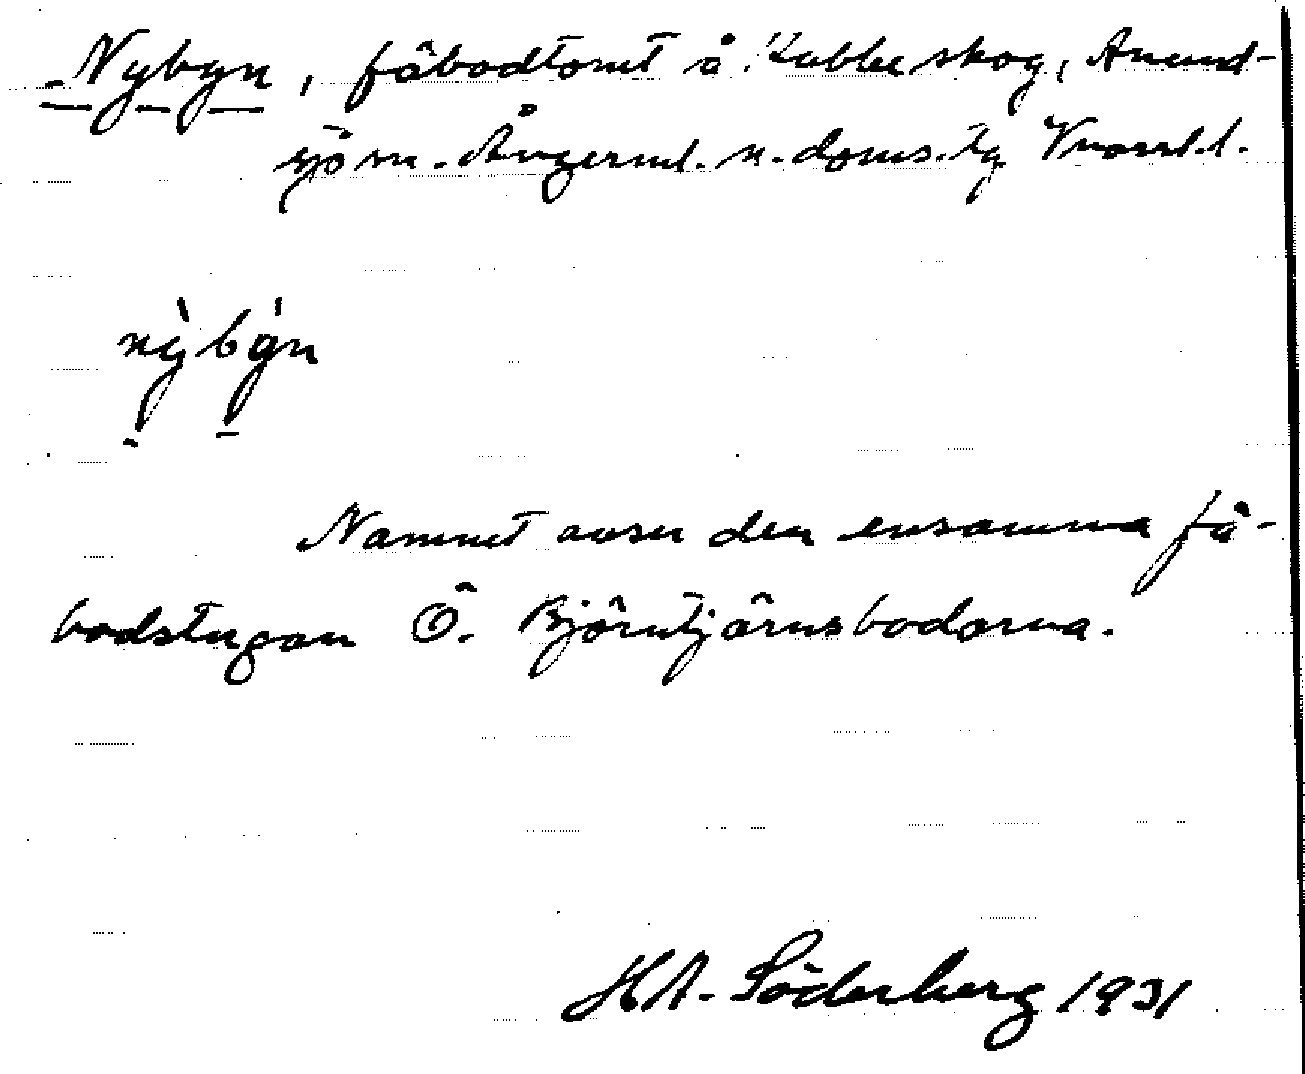 Nybyn, fäbodtomt å Kubbe skog, Anund-
sjö sn. Ångerml. n. doms. tg Vnorrl. l.
nỳbýn
Namnet avser den ensamma fä-
bodstugan Ö. Björntjärnsbodarna.
HA. Söderberg 1931